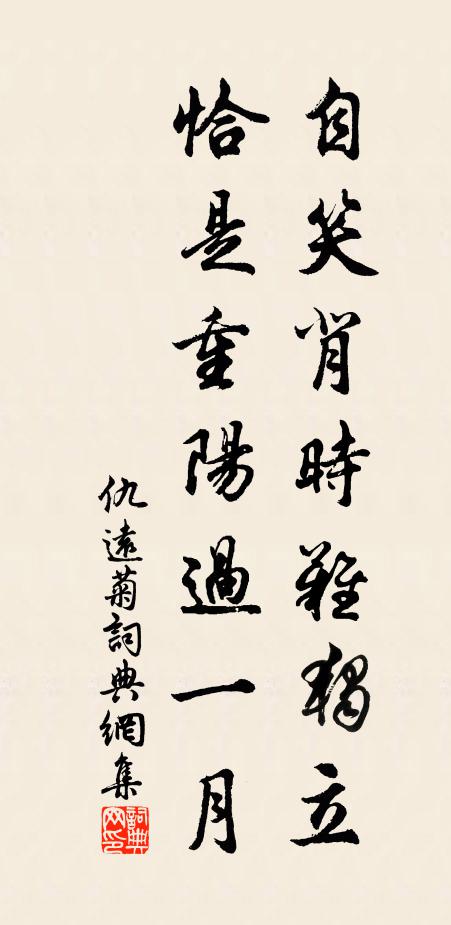 自笑背時難獨立
恰是重陽過一月
仇遠菊詞典網集
詞典网印